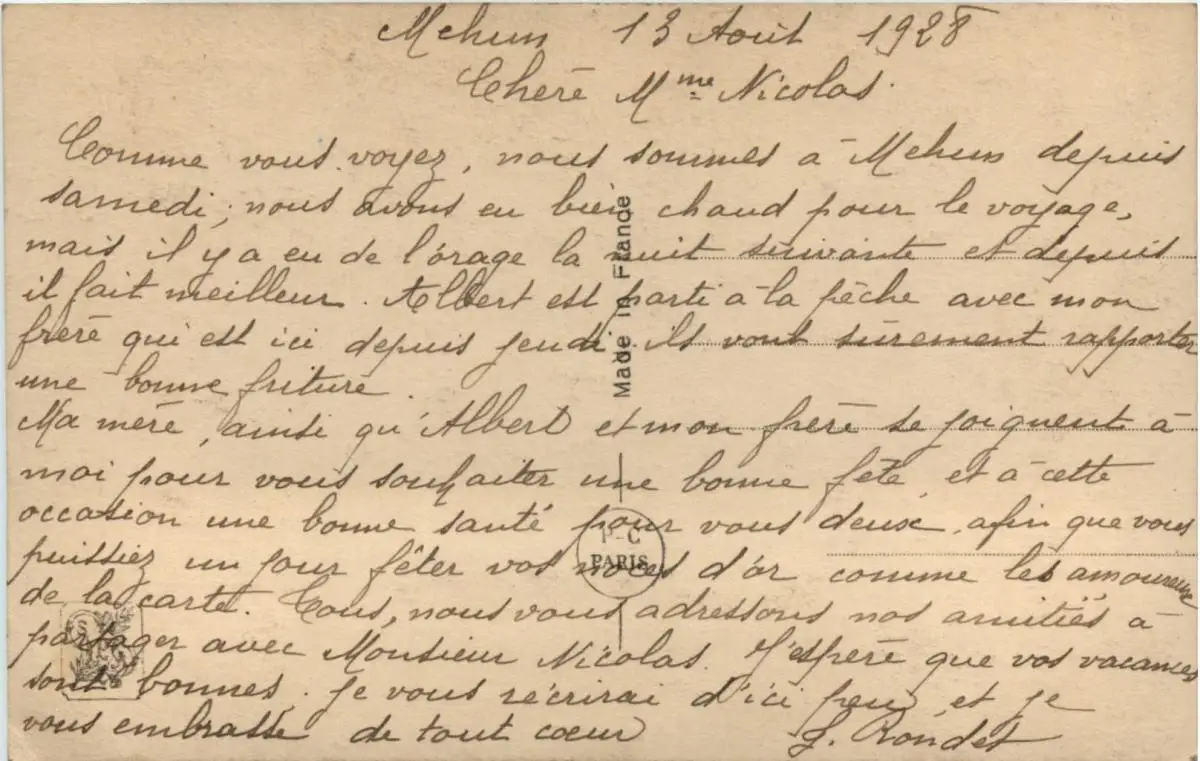 Mehun 13 Août 1928
Chère Mme Nicolas.
Comme vous voyez, nous sommes à Mehun depuis
samedi; nous avons eu bien chaud pour le voyage,
mais il y a eu de l'orage la nuit suivante et depuis
il fait meilleur. Albert est parti à la pêche avec mon
frère qui est ici depuis jeudi ils vont sûrement rapporter
une bonne friture.
Ma mère, ainsi qu'Albert et mon frère se joignent à
moi pour vous souhaiter une bonne fête, et à cette
occasion une bonne santé pour vous deux, afin que vous
puissiez un jour fêter vos noces d'or comme les amoureux
de la carte. Tous, nous vous adressons nos amitiés à
partager avec Monsieur Nicolas. J'espère que vos vacances
sont bonnes. Je vous récrirai d'ici peu, et je
vous embrasse de tout cœur
J. Rondet
Made in France
P-C
PARIS